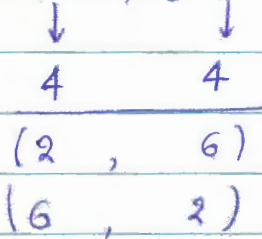 ↓ ↓
4 4
(2 , 6)
(6 , 2)